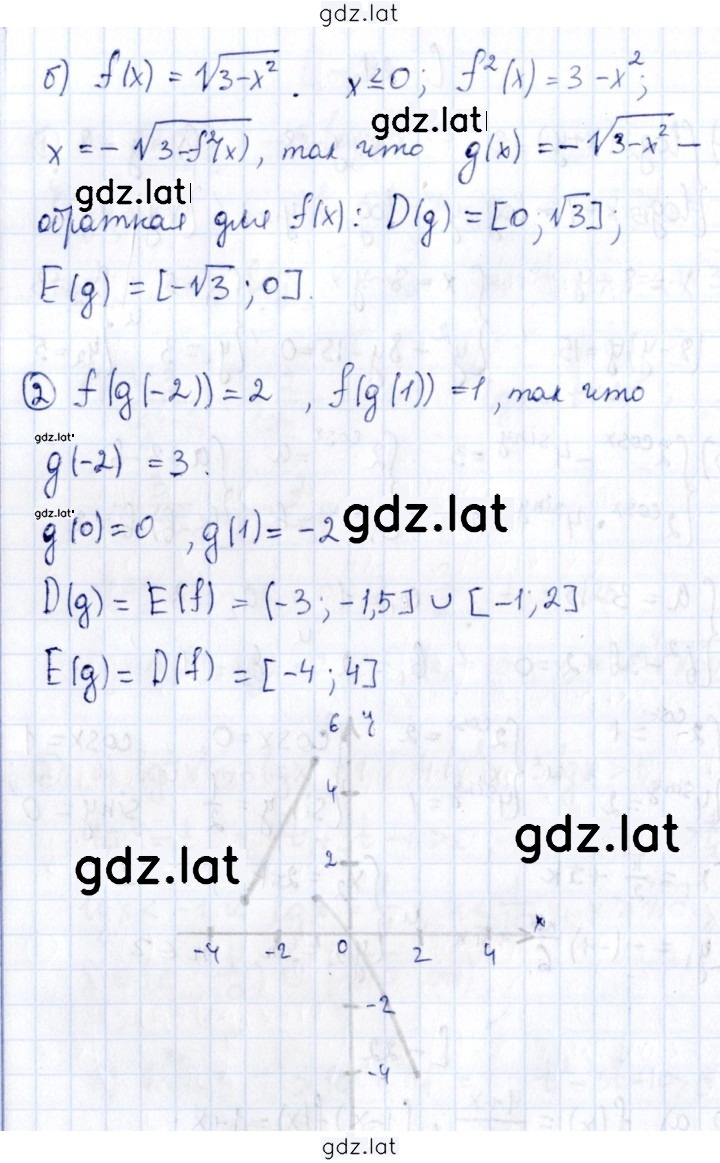 gdz.lat
б) f(x) = √3-x² . x ≤ 0; f²(x) = 3 - x²;
gdz.lat
x = - √3-f²(x), так что g(x) = - √3-x² -
gdz.lat
обратная для f(x): D(g) = [0; √3];
E(g) = [-√3; 0].
② f(g(-2)) = 2 , f(g(1)) = 1, так что
gdz.lat
g(-2) = 3.
gdz.lat
g(0) = 0 , g(1) = -2
gdz.lat
D(g) = E(f) = (-3; -1,5] ∪ [-1; 2]
E(g) = D(f) = [-4; 4]
6 y
4
gdz.lat
2
gdz.lat
x
-4 -2 0 2 4
-2
-4
gdz.lat